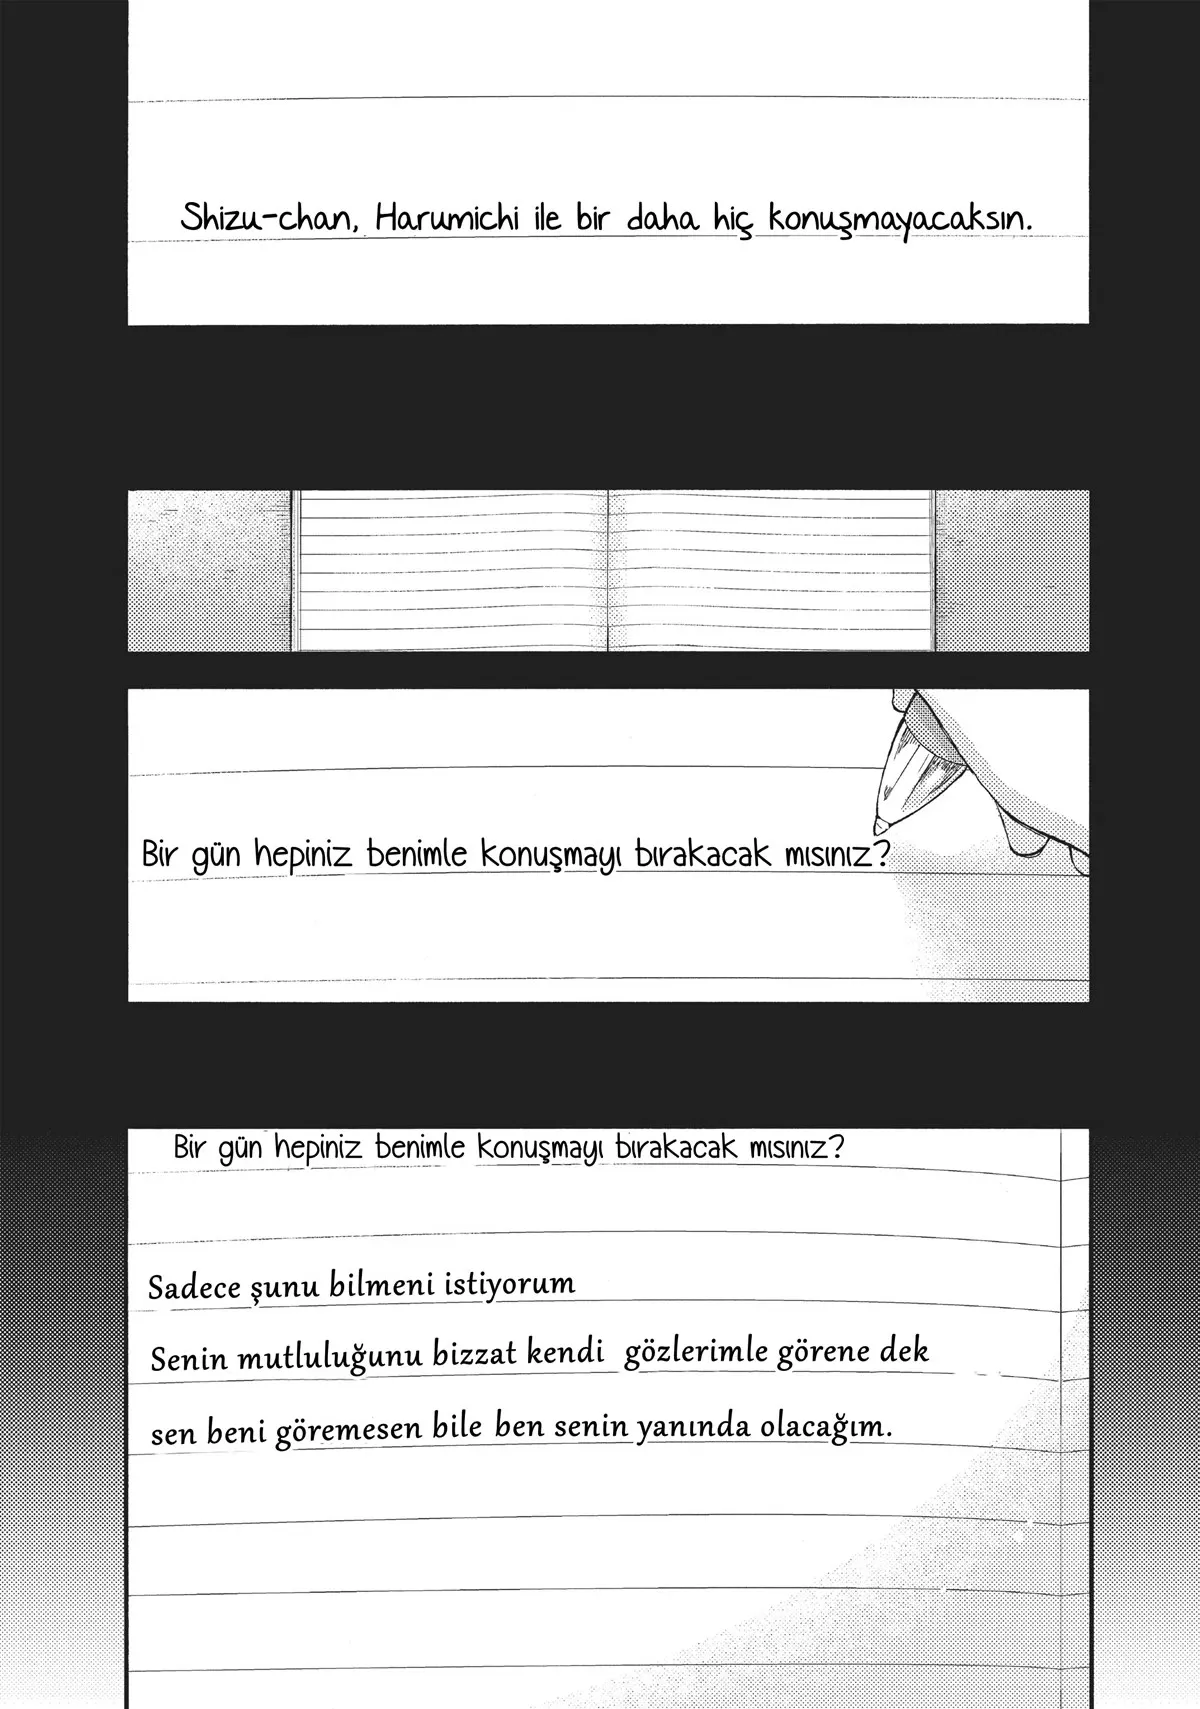 Shizu-chan, Harumichi ile bir daha hiç konuşmayacaksın.
Bir gün hepiniz benimle konuşmayı bırakacak mısınız?
Bir gün hepiniz benimle konuşmayı bırakacak mısınız?
Sadece şunu bilmeni istiyorum
Senin mutluluğunu bizzat kendi gözlerimle görene dek
sen beni göremesen bile ben senin yanında olacağım.